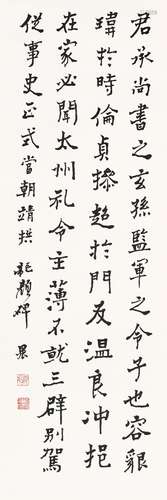 君承尚書之玄孫監軍之令子也容貌
瑋於時倫貞操超於門友温良冲挹
在家必聞太州礼令主薄不就三辟别駕
従事史正式當朝靖拱 龍顏碑